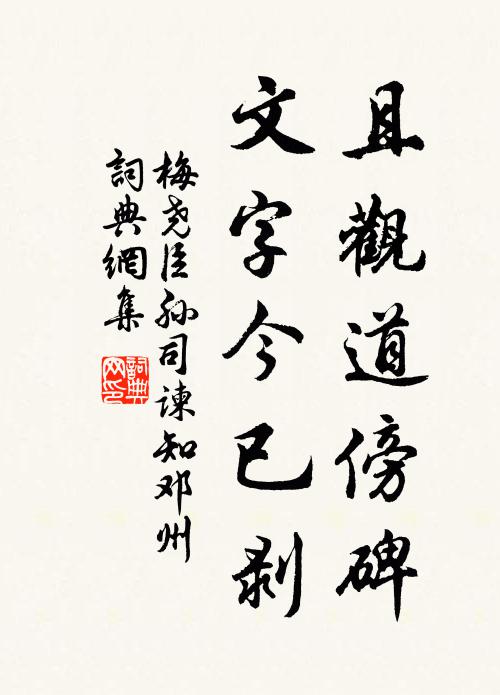 且觀道傍碑
文字今已剥
梅尧臣孙司諫知邓州
詞典網集
詞典網印